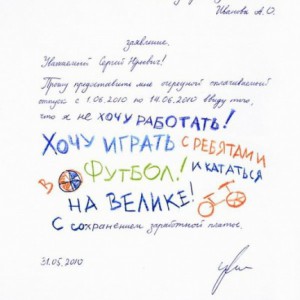 Иванова А.О.
заявление.
Уважаемый Сергей Юрьевич!
Прошу предоставить мне очередной оплачиваемый
отпуск с 1.06.2010 по 14.06.2010 ввиду того,
что я не хочу работать!
Хочу играть с ребятами
в футбол! и кататься
на велике!
С сохранением заработной платы.
31.05.2010